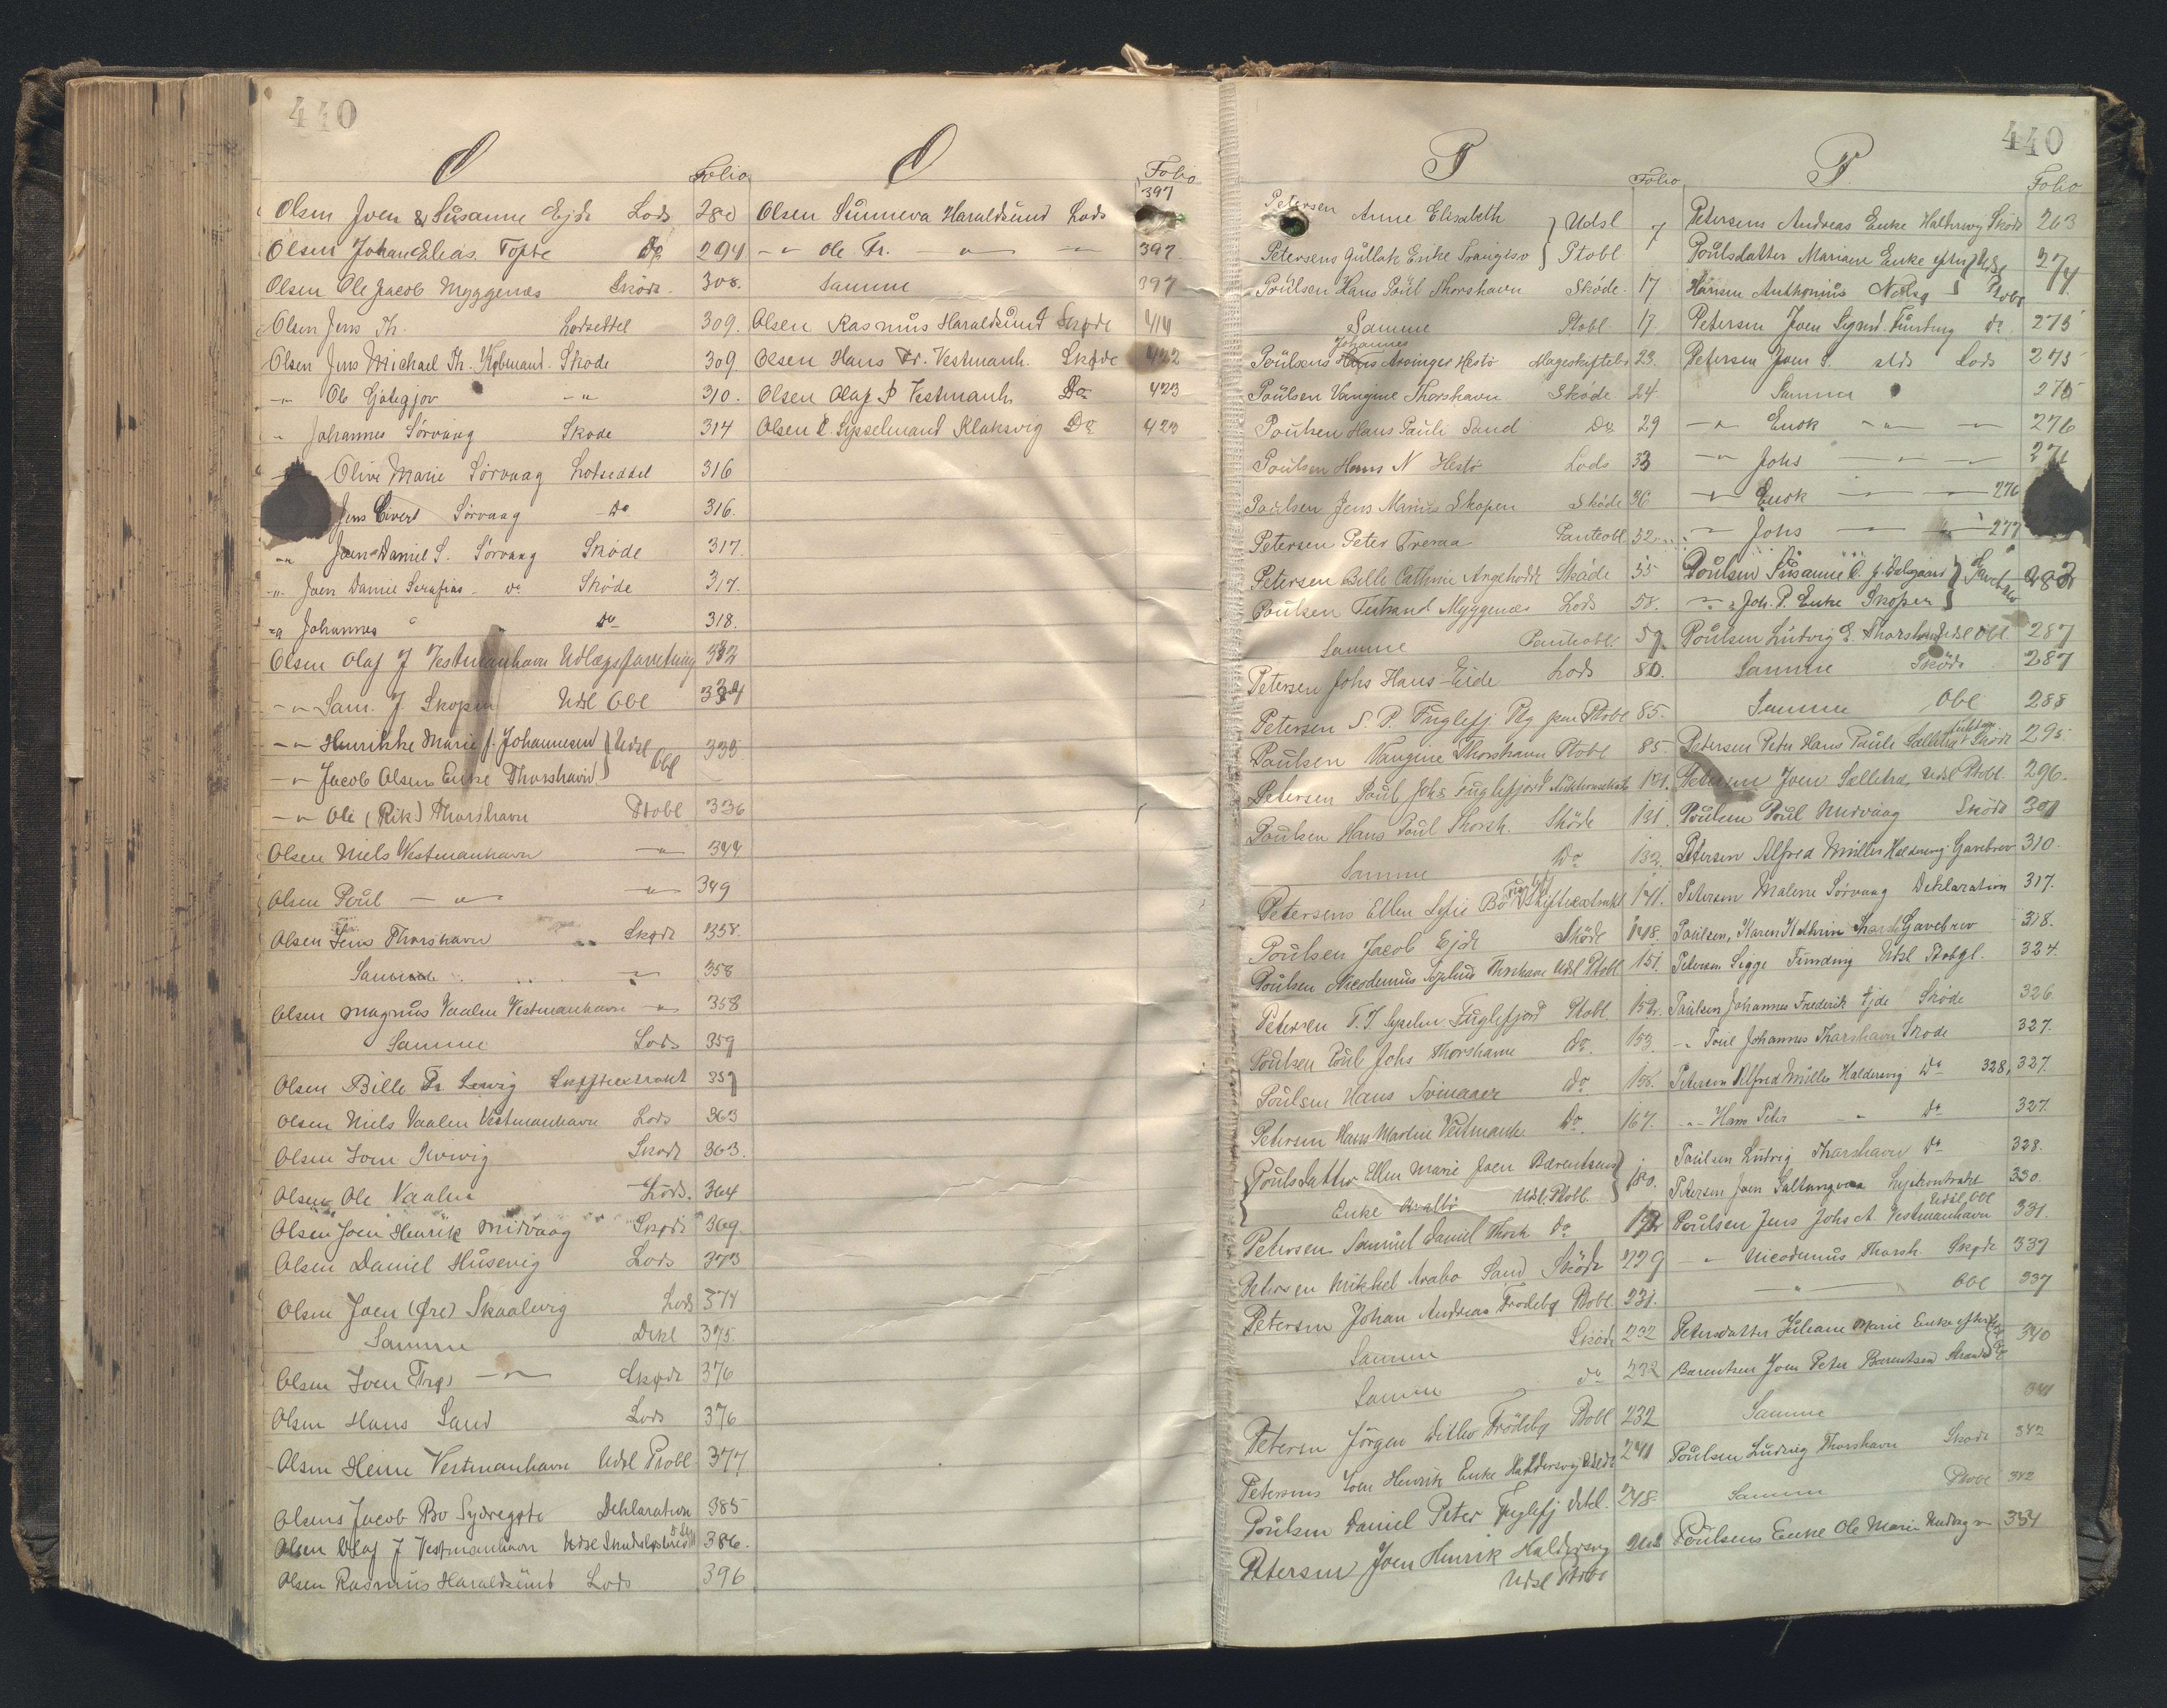 440
O Folio
Olsen Joen & Susanne Ejde Lods 280
Olsen Johan Elias Tofte Do 294
Olsen Ole Jacob Myggenæs Sköde 308.
Olsen Jens Th. Lodseddel 309.
Olsen Jens Michael Th. Købmand. Skøde 309
-"- Ole Götegjov -"- 310.
-"- Johannes Sörvaag Skøde 314
Olive Marie Sörvaag Lodseddel 316
Jens Eivert Sörvaag Do 316.
-"- Joen Daniel S. Sörvaag Sköde 317.
-"- Joen Daniel Serafias - do Sköde 317.
-"- Johannes " do 318.
Olsen Olaf J Vestmanhavn Udlægsforretning 332
-"- Sam. J. Skopen Udsl Obl 334
-"- Henrikke Marie f. Johannesen } Udsl Obl 335
-"- Jacob Olsens Enke Thorshavn }
-"- Ole (Rik) Thorshavn Ptobl 336
Olsen Niels Vestmanhavn -"- 344
Olsen Poul -"- -"- 349
Olsen Jens Thorshavn Skøde 358
Samme -"- 358
Olsen Magnus Vaalen Vestmanhavn -"- 358
Samme Lods 359
Olsen Bille Fr. Skifteextrakt 359
Olsen Niels Vaalen Vestmanhavn Lods 363
Olsen Joen Kvivig Skøde 363.
Olsen Ole Vaalen Lods. 364
Olsen Joen Henrik Midvaag Skøde 369.
Olsen Daniel Husevig Lods 373
Olsen Joen (Øre) Skaalevig Lods 374
Samme Dekl 375
Olsen Joen -"- Skøde 376
Olsen Hans Sand Lods 376
Olsen Heine Vestmanhavn Udsl Ptobl 377
Olsens Jacob Bo Sydregøte Deklaration 385
Olsen Olaf J Vestmanhavn Udsl 386.
Olsen Rasmus Haraldsund Lods 396
O Folio
Olsen Sunneva Haraldsund Lods 397
-"- Ole Fr. -"- -"- 397
Samme 397
Olsen Rasmus Haraldsund Skøde 414
Olsen Hans Fr. Vestmanh. Skøde 422
Olsen Olaf J Vestmanh Do 423
Olsen E. Sysselmand Klaksvig Do 423
440
P Folio
Petersen Anne Elisabeth } Udsl 7
Petersens Gullak Enke } Ptobl
Poulsen Hans Poul Thorshavn Sköde. 17
Samme Ptobl 17.
Johannes
Poulsens Hans Hestö Mageskiftebr 23.
Poulsen Vangine Thorshavn Sköde 24.
Poulsen Hans Pauli Sand Do 29
Poulsen Hans N Hestö Lods 33
Poulsen Jens Marius Skopen Sköde 36
Petersen Peter Trøraa Panteobl. 52
Petersen Bille Cathrine Sköde 55
Poulsen Myggenæs Lods 58.
Samme Panteobl. 59
Petersen Johs Hans Eide Lods 80.
Petersen S. P. Fuglefj. Ptobl 85.
Poulsen Vangine Thorshavn Ptobl 85.
Petersen Poul Johs Fuglefjord 121.
Poulsen Hans Poul Thorsh. Sköde 131.
Samme Do 132.
Petersens Ellen Sofie Bo Skifteextrakt 141.
Poulsen Jacob Ejde Sköde 148.
Poulsen Nicodemus Thorshavn Udsl Ptobl 151.
Petersen Fuglefjord Ptobl. 152.
Poulsen Poul Johs Thorshavn do. 153.
Poulsen Hans Svinaaer do. 158.
Petersen Hans Martin Vestmanh. Do. 167.
{ Poulsdatter Ellen Marie Joen Barentsens } 180.
Enke Kvalbö Udsl. Ptobl.
Petersen Samuel Daniel Thorsh do 192
Petersen Mikkel Arabo Sand Sköde 229
Petersen Johan Andreas Frodeby Ptobl 231.
Samme Sköde 232
Samme do 232
Petersen Jörgen Ditlev Frödeby Ptobl 232
Petersens Joen Henrik Enke Haldersvig 241
Poulsen Daniel Peter Fuglefj 248.
Petersen Joen Henrik Haldersvig
Udsl Ptobl
P Folio
Petersens Andreas Enke Haldersvig Sköde 263
Poulsdatter Mariane Enke efter } Udsl 274
Hansen Anthonius Nolsø } Ptobl
Petersen Joen Sigmd. Funding do 275
Petersen Joen S. Lods 275
Samme 275
-"- Enok -"- -"- 276
-"- Johs -"- -"-
-"- Enok -"- -"- 276
-"- Johs -"- 277
Poulsen Susanne C. f. Dalsgaard } Gavebrev 282
-"- Joh. P. Enke Skopen }
Poulsen Ludvig E. Thorshavn Udsl Obl 287
Samme Sköde 287
Samme Obl 288
Petersen Peter Hans Pauli Selletræ Sköde 295
Petersen Joen Selletræ Udsl Ptobl. 296.
Poulsen Poul Midvaag Sköde 301
Petersen Alfred Müller Haldersvig Gavebrev 310.
Petersen Malene Sörvaag Deklaration 317.
Poulsen, Karen Kathrine Gavebrev 318.
Petersen Sigge Funding Udsl Ptobl. 324.
Poulsen Johannes Frederik Ejde Sköde 326.
-"- Poul Johannes Thorshavn Skøde 327.
Petersen Alfred Müller Haldersvig Do 328, 327.
-"- Hans Peter -"- do 327.
Poulsen Ludvig Thorshavn do 328.
Petersen Joen Saltangraa 330.
Udsl, Obl
Poulsen Jens Johs A. Vestmanhavn 331.
-"- Nicodemus Thorsh. Skøde 337
-"- Obl 337
Petersdatter Juliane Marie Enke efter } 340
Barentsen Joen Peter Barentsen Strand }
Samme 341
Poulsen Ludvig Thorshavn Skøde 342
Samme Ptobl 342
Poulsens Enke Ole Marie 354